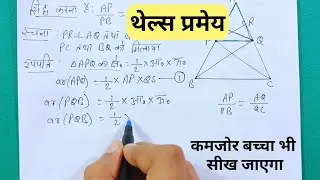 सिद्ध करना है: AP/PB = AQ/
थेल्स प्रमेय
रचना: PR⊥AQ तथा
PC तथा BQ को मिलाया
उपपत्ति: △APQ का क्षे० = 1/2 × आ० × ऊं०
ar(APQ) = 1/2 × AP × QS - ①
ar(PQB) = 1/2 × आ० × ऊं०
ar(PQB) = 1/2 ×
R
Q
B
AP/PB = AQ/QC
कमजोर बच्चा भी
सीख जाएगा